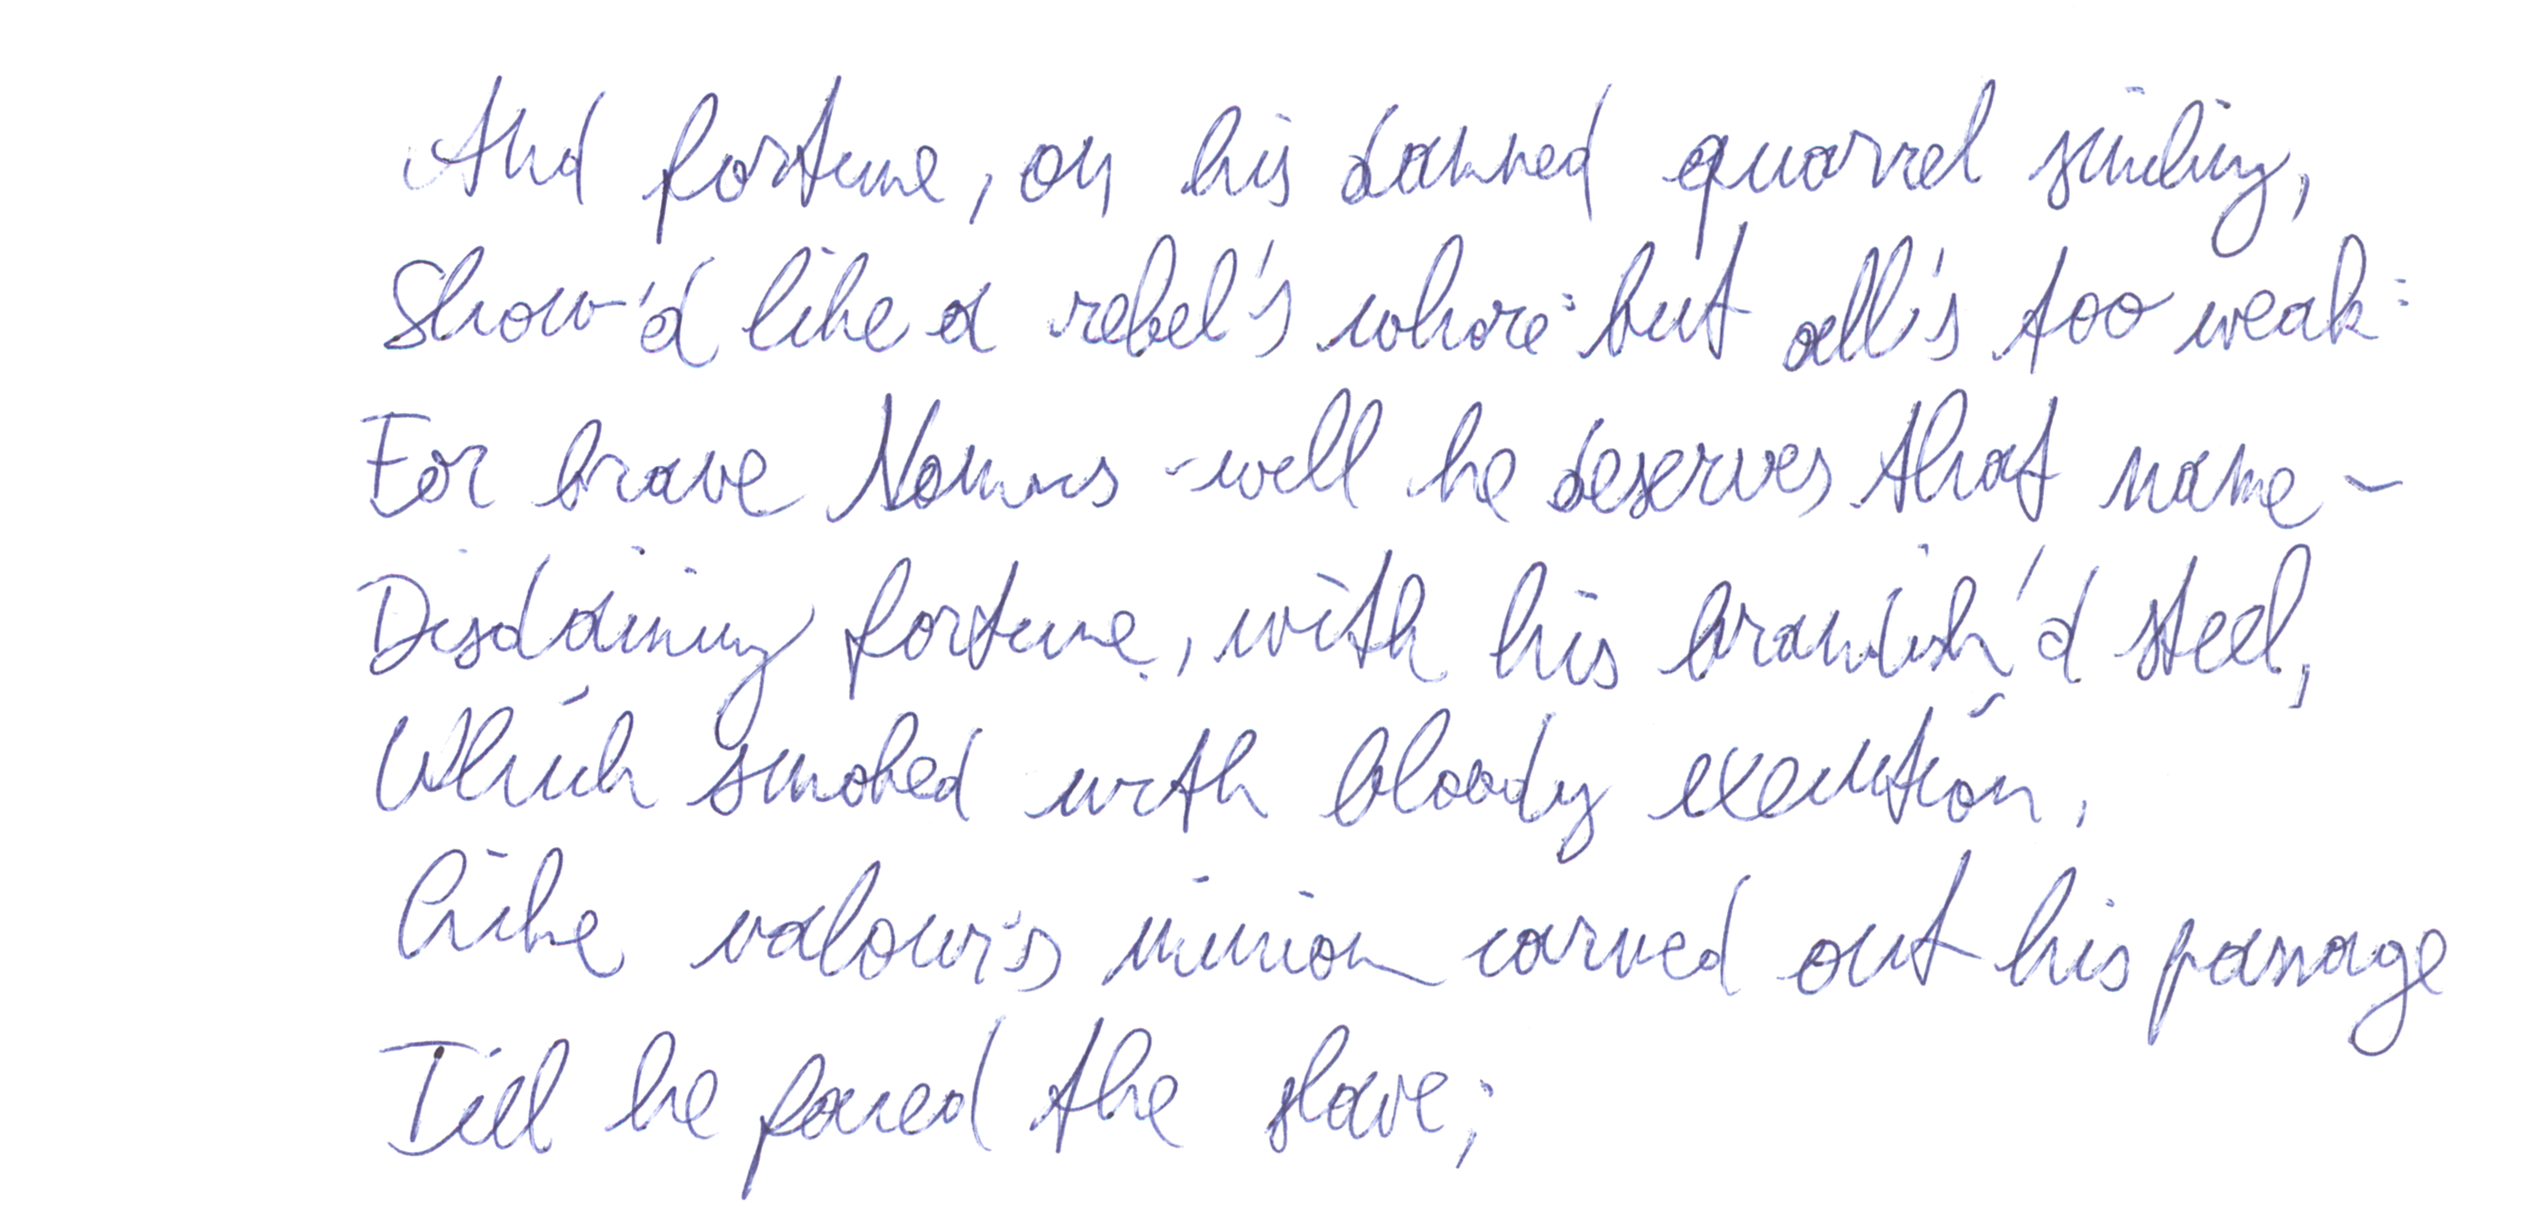 And fortune, on his damned quarrel smiling,
Show'd like a rebel's whore: but all's too weak:
For brave - well he deserves that name -
Disdaining fortune, with his brandish'd steel,
Which smoked with bloody execution,
Like valour's minion carved out his passage
Till he faced the slave;